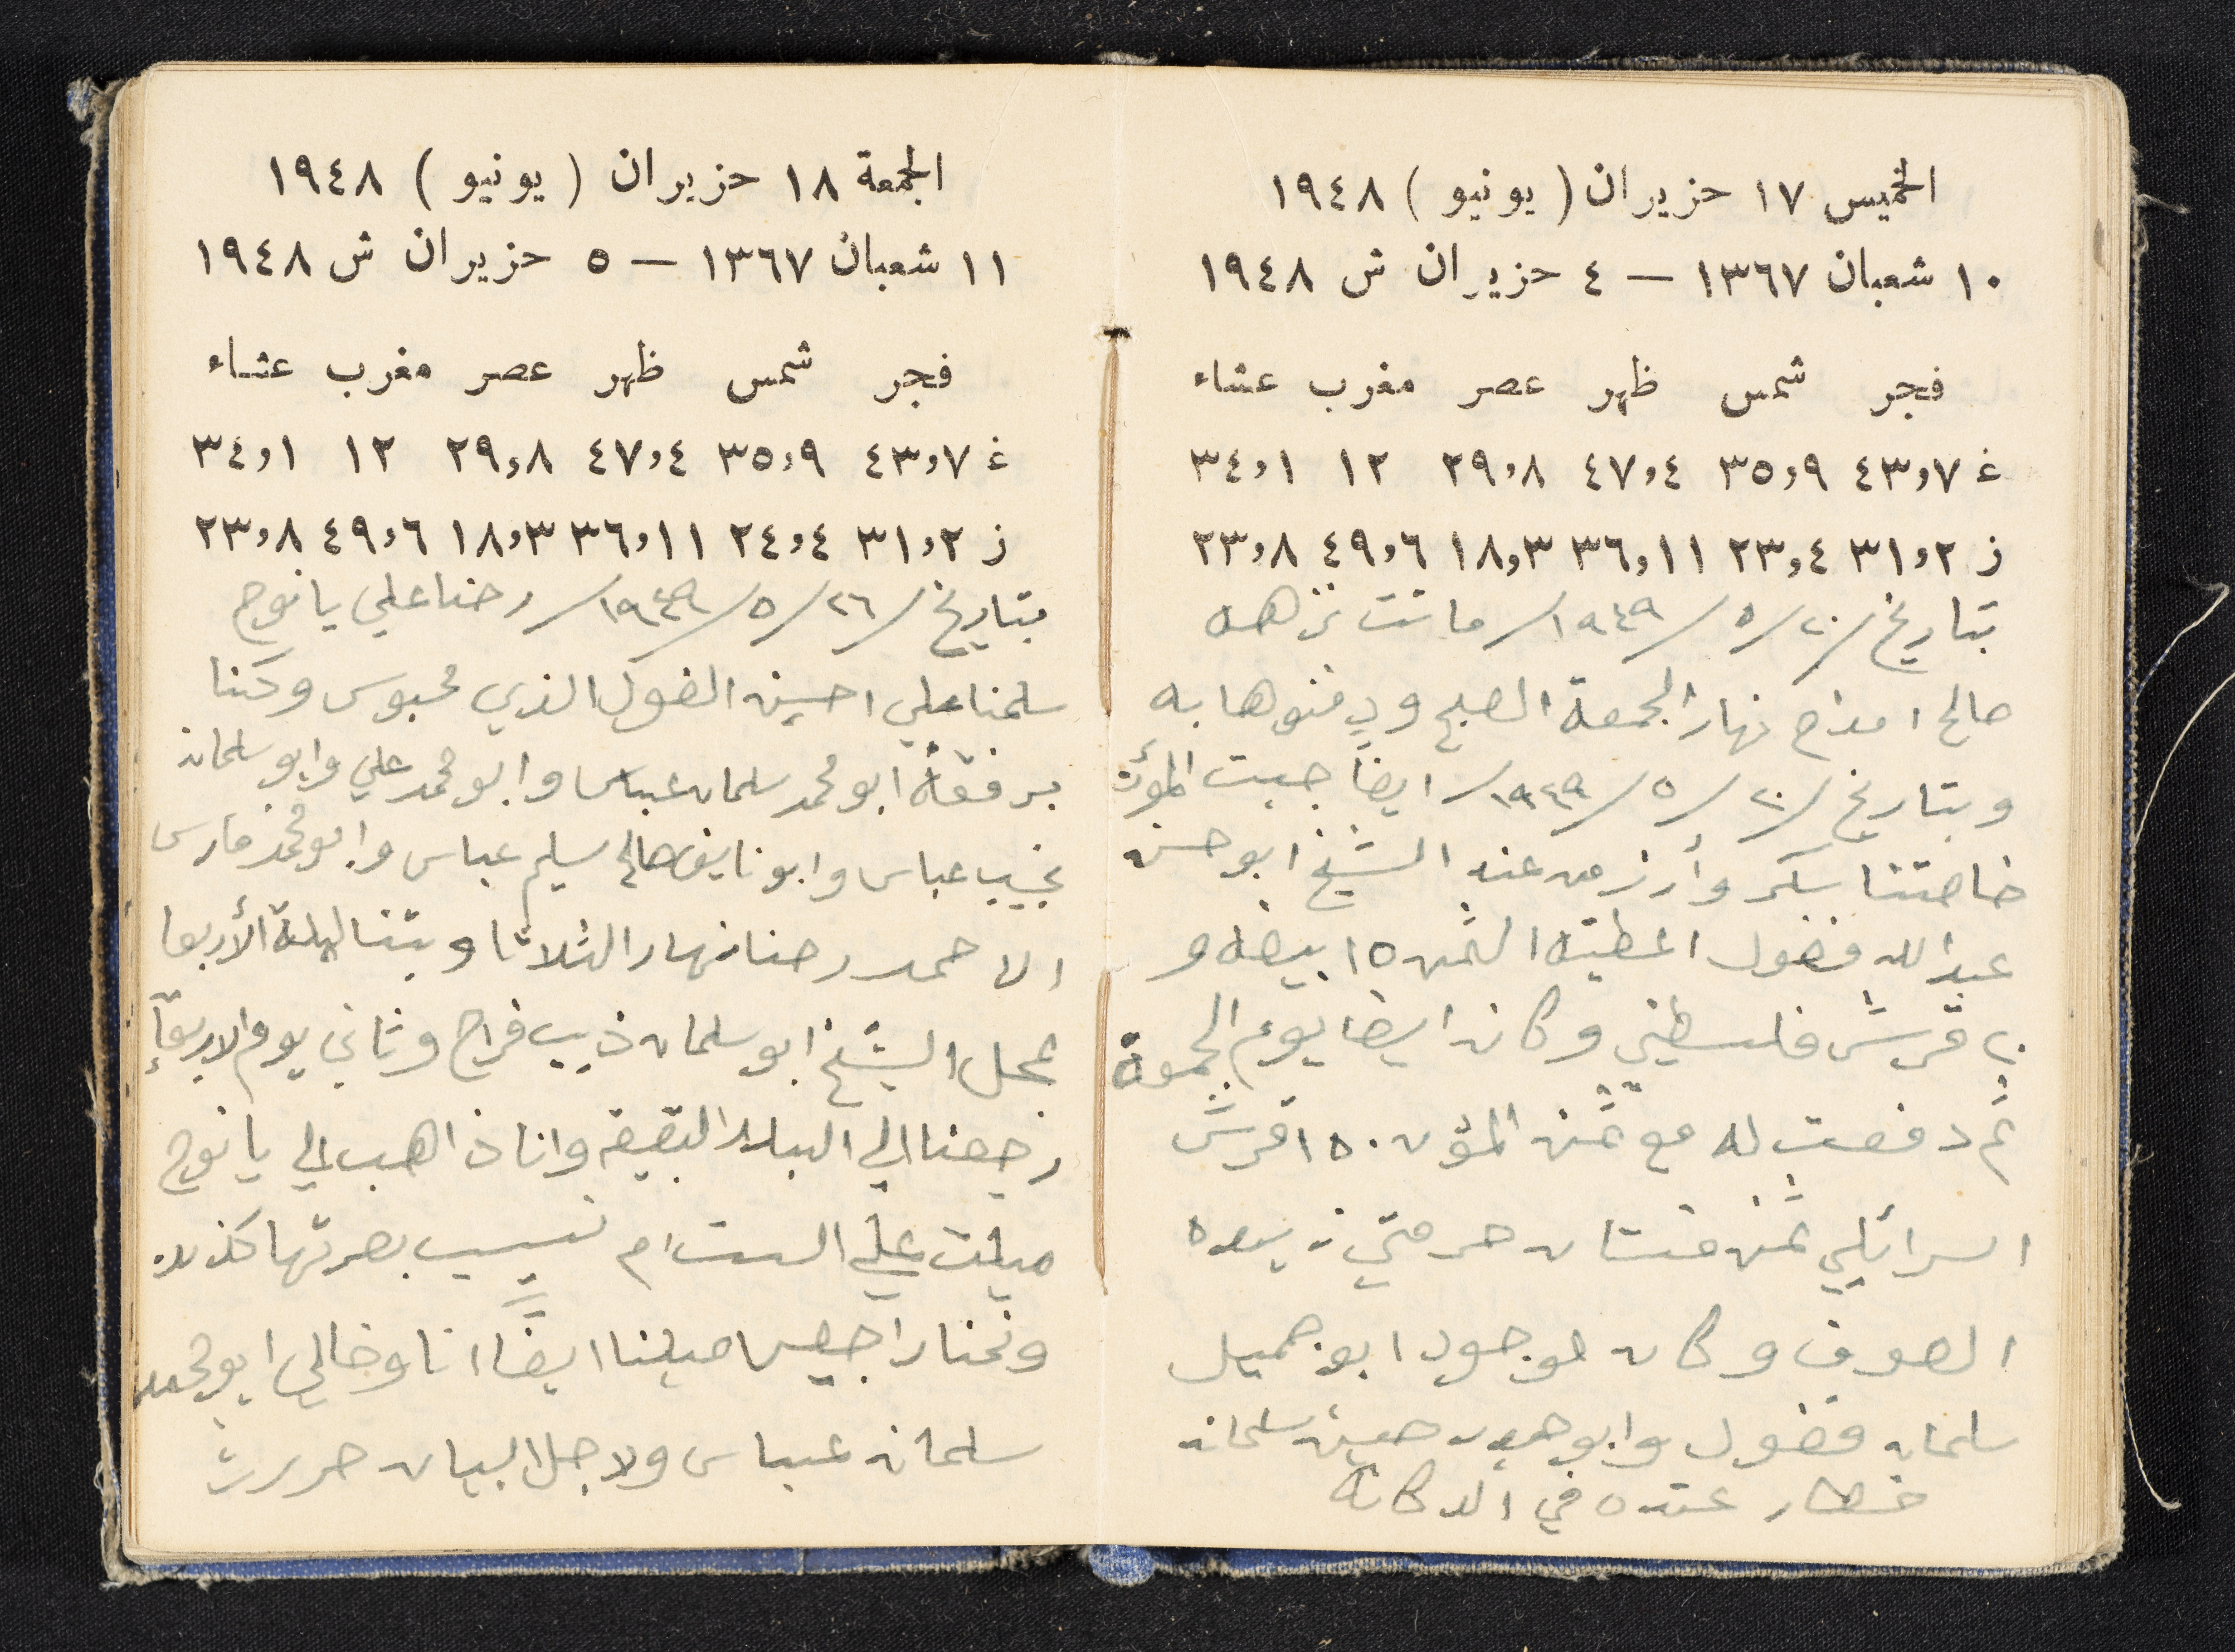 الخميس ١٧ حزيران ( يونيو ) ١٩٤٨
١٠ شعبان ١٣٦٧ — ٤ حزيران ش ١٩٤٨
فجر شمس ظهر عصر مغرب عشاء
غ ٤٣،٧ ٣٥،٩ ٤٧،٤ ٢٩،٨ ١٢ ٣٤،١
ز ٣١،٢ ٢٣،٤ ٣٦،١١ ١٨،٣ ٤٩،٦ ٢٣،٨
بتاريخ /٢٠/ ٥/ ١٩٤٩/ ماتت نزهه
صالح امداح نهار الجمعة الصبح ودفنوها به
وبتاريخ /٢٠/ ٥/ ١٩٤٩/ ايضاً جبت المؤن
خاصتنا سكر وأرز من عند الشيخ ابو حسن
عبدالله فضول اعطيته الثمن ١٥ بيضه و
٢٠ قرش فلسطيني وكان ايضا يوم الجمعة
ثم دفعت له مع ثمن المؤن ١٥٠ قرش
اسرائيلي ثمن فستان حرمتي زبيده
الصوف وكان بوجود ابو جميل
سلمان فضول وابو حسين سلمان
خطار عنده في الدكانه
الجمعة ١٨ حزيران ( يونيو ) ١٩٤٨
١١ شعبان ١٣٦٧ — ٥ حزيران ش ١٩٤٨
فجر شمس ظهر عصر مغرب عشاء
غ ٤٣،٧ ٣٥،٩ ٤٧،٤ ٢٩،٨ ١٢ ٣٤،١
ز ٣١،٢ ٢٤،٤ ٣٦،١١ ١٨،٣ ٤٩،٦ ٢٣،٨
بتاريخ /٢٦/ ٥/ ١٩٤٩/ رحنا علي يانوح
سلمنا علي احسين الغول الذي محبوس وكنا
برفقة ابو محمد سلمان عباس وابو محمد علي وابو سلمان
نجيب عباس وابو نايف صالح سليم عباس وابو محمد فارس
الاحمد رحنا نهار الثلاثا وبتنا ليلة الأربعا
بمحل الشيخ ابو سلمان ذيب فراج وثاني يوم الاربعآ
رجعنا الي البلد البقيعه وانا ذاهب الي يانوح
ميلت علي الست ام نسيب بصرتها كذلك
ونحنا راجعين ميلنا ايضًا انا وخالي ابو محمد
سلمان عباس ولاجل البيان حررت